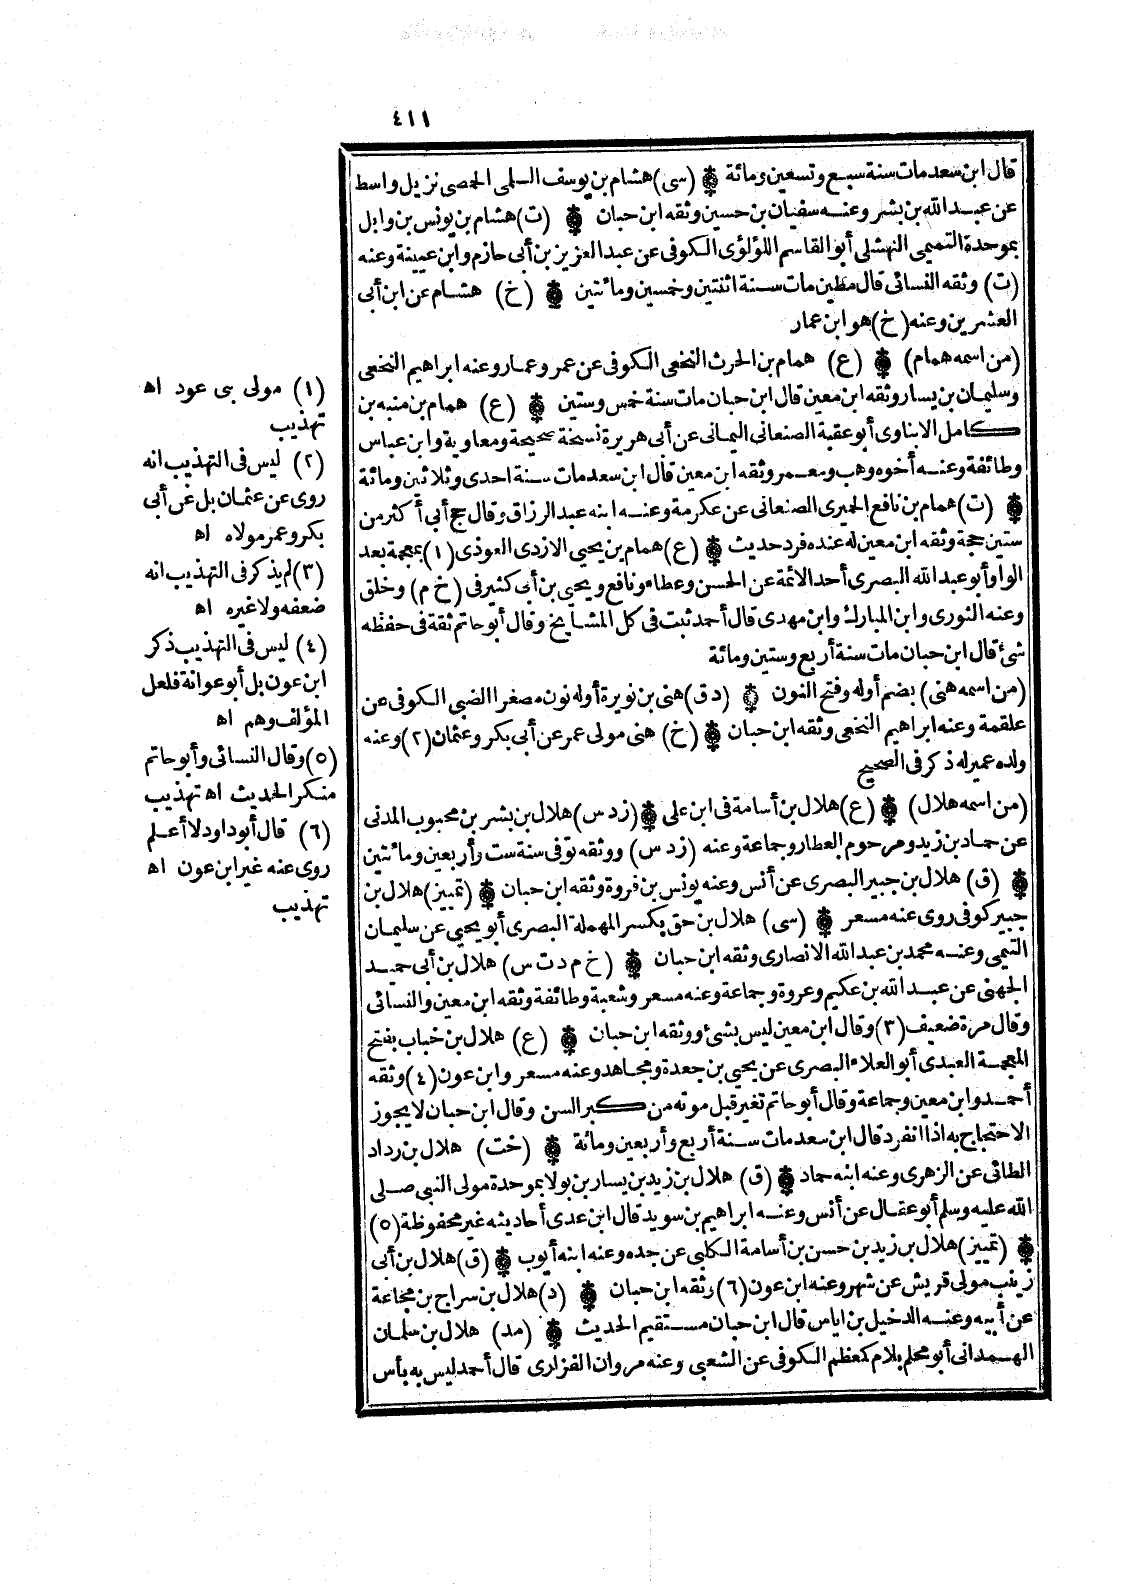 ٤١١
قال ابن سعد مات سنة سبع وتسعين ومائة ۞ (سى) هشام بن يوسف السلمى الحمصى نزيل واسط
عن عبد الله بن بشر وعنه سفيان بن حسين وثقه ابن حبان ۞ (ت) هشام بن يونس بن وابل
بموحدة التميمى النهشلى أبو القاسم اللؤلؤى الكوفى عن عبد العزيز بن أبى حازم وابن عيينة وعنه
(ت) وثقه النسائى قال مطين مات سنة اثنتين وخمسين ومائتين ۞ (خ) هشام عن ابن أبى
العشرين وعنه (خ) هو ابن عمار
(من اسمه همام) ۞ (ع) همام بن الحرث النخعى الكوفى عن عمر وعمار وعنه ابراهيم النخعى
وسليمان بن يسار وثقه ابن معين قال ابن حبان مات سنة خمس وستين ۞ (ع) همام بن منبه بن
كامل الابناوى أبو عقبة الصنعانى اليمانى عن أبى هريرة نسخة صحيحة ومعاوية وابن عباس
وطائفة وعنه أخوه وهب ومعمر وثقه ابن معين قال ابن سعد مات سنة احدى وثلاثين ومائة
۞ (ت) همام بن نافع الحميرى الصنعانى عن عكرمة وعنه ابنه عبد الرزاق وقال حج أبى أكثر من
ستين حجة وثقه ابن معين له عنده فرد حديث ۞ (ع) همام بن يحيى الازدى العوذى (١) بمعجمة بعد
الواو أبو عبد الله البصرى أحد الائمة عن الحسن وعطاء ونافع ويحيى بن أبى كثير فى (خ م) وخلق
وعنه الثورى وابن المبارك وابن مهدى قال أحمد ثبت فى كل المشايخ وقال أبو حاتم ثقة فى حفظه
شئ قال ابن حبان مات سنة أربع وستين ومائة
(من اسمه هنى) بضم أوله وفتح النون ۞ (د ق) هنى بن نويرة أوله نون مصغرا الضبى الكوفى عن
علقمة وعنه ابراهيم النخعى وثقه ابن حبان ۞ (خ) هنى مولى عمر عن أبى بكر وعثمان (٢) وعنه
ولده عمير له ذكر فى الصحيح
(من اسمه هلال) ۞ (ع) هلال بن أسامة فى ابن على ۞ (ز د س) هلال بن بشر بن محبوب المدنى
عن حماد بن زيد ومرحوم العطار وجماعة وعنه (ز د س) ووثقه توفى سنة ست وأربعين ومائتين
۞ (ق) هلال بن جبير البصرى عن أنس وعنه يونس بن فروة وثقه ابن حبان ۞ (تمييز) هلال بن
جبير كوفى روى عنه مسعر ۞ (سى) هلال بن حق بكسر المهملة البصرى أبو يحيى عن سليمان
التيمى وعنه محمد بن عبد الله الانصارى وثقه ابن حبان ۞ (خ م د ت س) هلال بن أبى حميد
الجهنى عن عبد الله بن عكيم وعروة وجماعة وعنه مسعر وشعبة وطائفة وثقه ابن معين والنسائى
وقال مرة ضعيف (٣) وقال ابن معين ليس بشئ ووثقه ابن حبان ۞ (ع) هلال بن خباب بفتح
المعجمة العبدى أبو العلاء البصرى عن يحيى بن جعدة ومجاهد وعنه مسعر وابن عون (٤) وثقه
أحمد وابن معين وجماعة وقال أبو حاتم تغير قبل موته من كبر السن وقال ابن حبان لا يجوز
الاحتجاج به اذا انفرد قال ابن سعد مات سنة أربع وأربعين ومائة ۞ (خت) هلال بن رداد
الطائى عن الزهرى وعنه ابنه حماد ۞ (ق) هلال بن زيد بن يسار بن بولا بموحدة مولى النبى صلى
الله عليه وسلم أبو عقال عن أنس وعنه ابراهيم بن سويد قال ابن عدى أحاديثه غير محفوظة (٥)
۞ (تمييز) هلال بن زيد بن حسن بن أسامة الكلبى عن جده وعنه ابنه أيوب ۞ (ق) هلال بن أبى
زينب مولى قريش عن شهر وعنه ابن عون (٦) وثقه ابن حبان ۞ (د) هلال بن سراج بن مجاعة
عن أبيه وعنه الدخيل بن اياس قال ابن حبان مستقيم الحديث ۞ (مد) هلال بن سلمان
الهمدانى أبو محلم بلام كمعظم الكوفى عن الشعبى وعنه مروان الفزارى قال أحمد ليس به بأس
(١) مولى بى عود اه
تهذيب
(٢) ليس فى التهذيب انه
روى عن عثمان بل عن أبى
بكر وعمر مولاه اه
(٣) لم يذكر فى التهذيب انه
ضعفه ولا غيره اه
(٤) ليس فى التهذيب ذكر
ابن عون بل أبو عوانة فلعل
المؤلف وهم اه
(٥) وقال النسائى وأبو حاتم
منكر الحديث اه تهذيب
(٦) قال أبو داود لا أعلم
روى عنه غير ابن عون اه
تهذيب